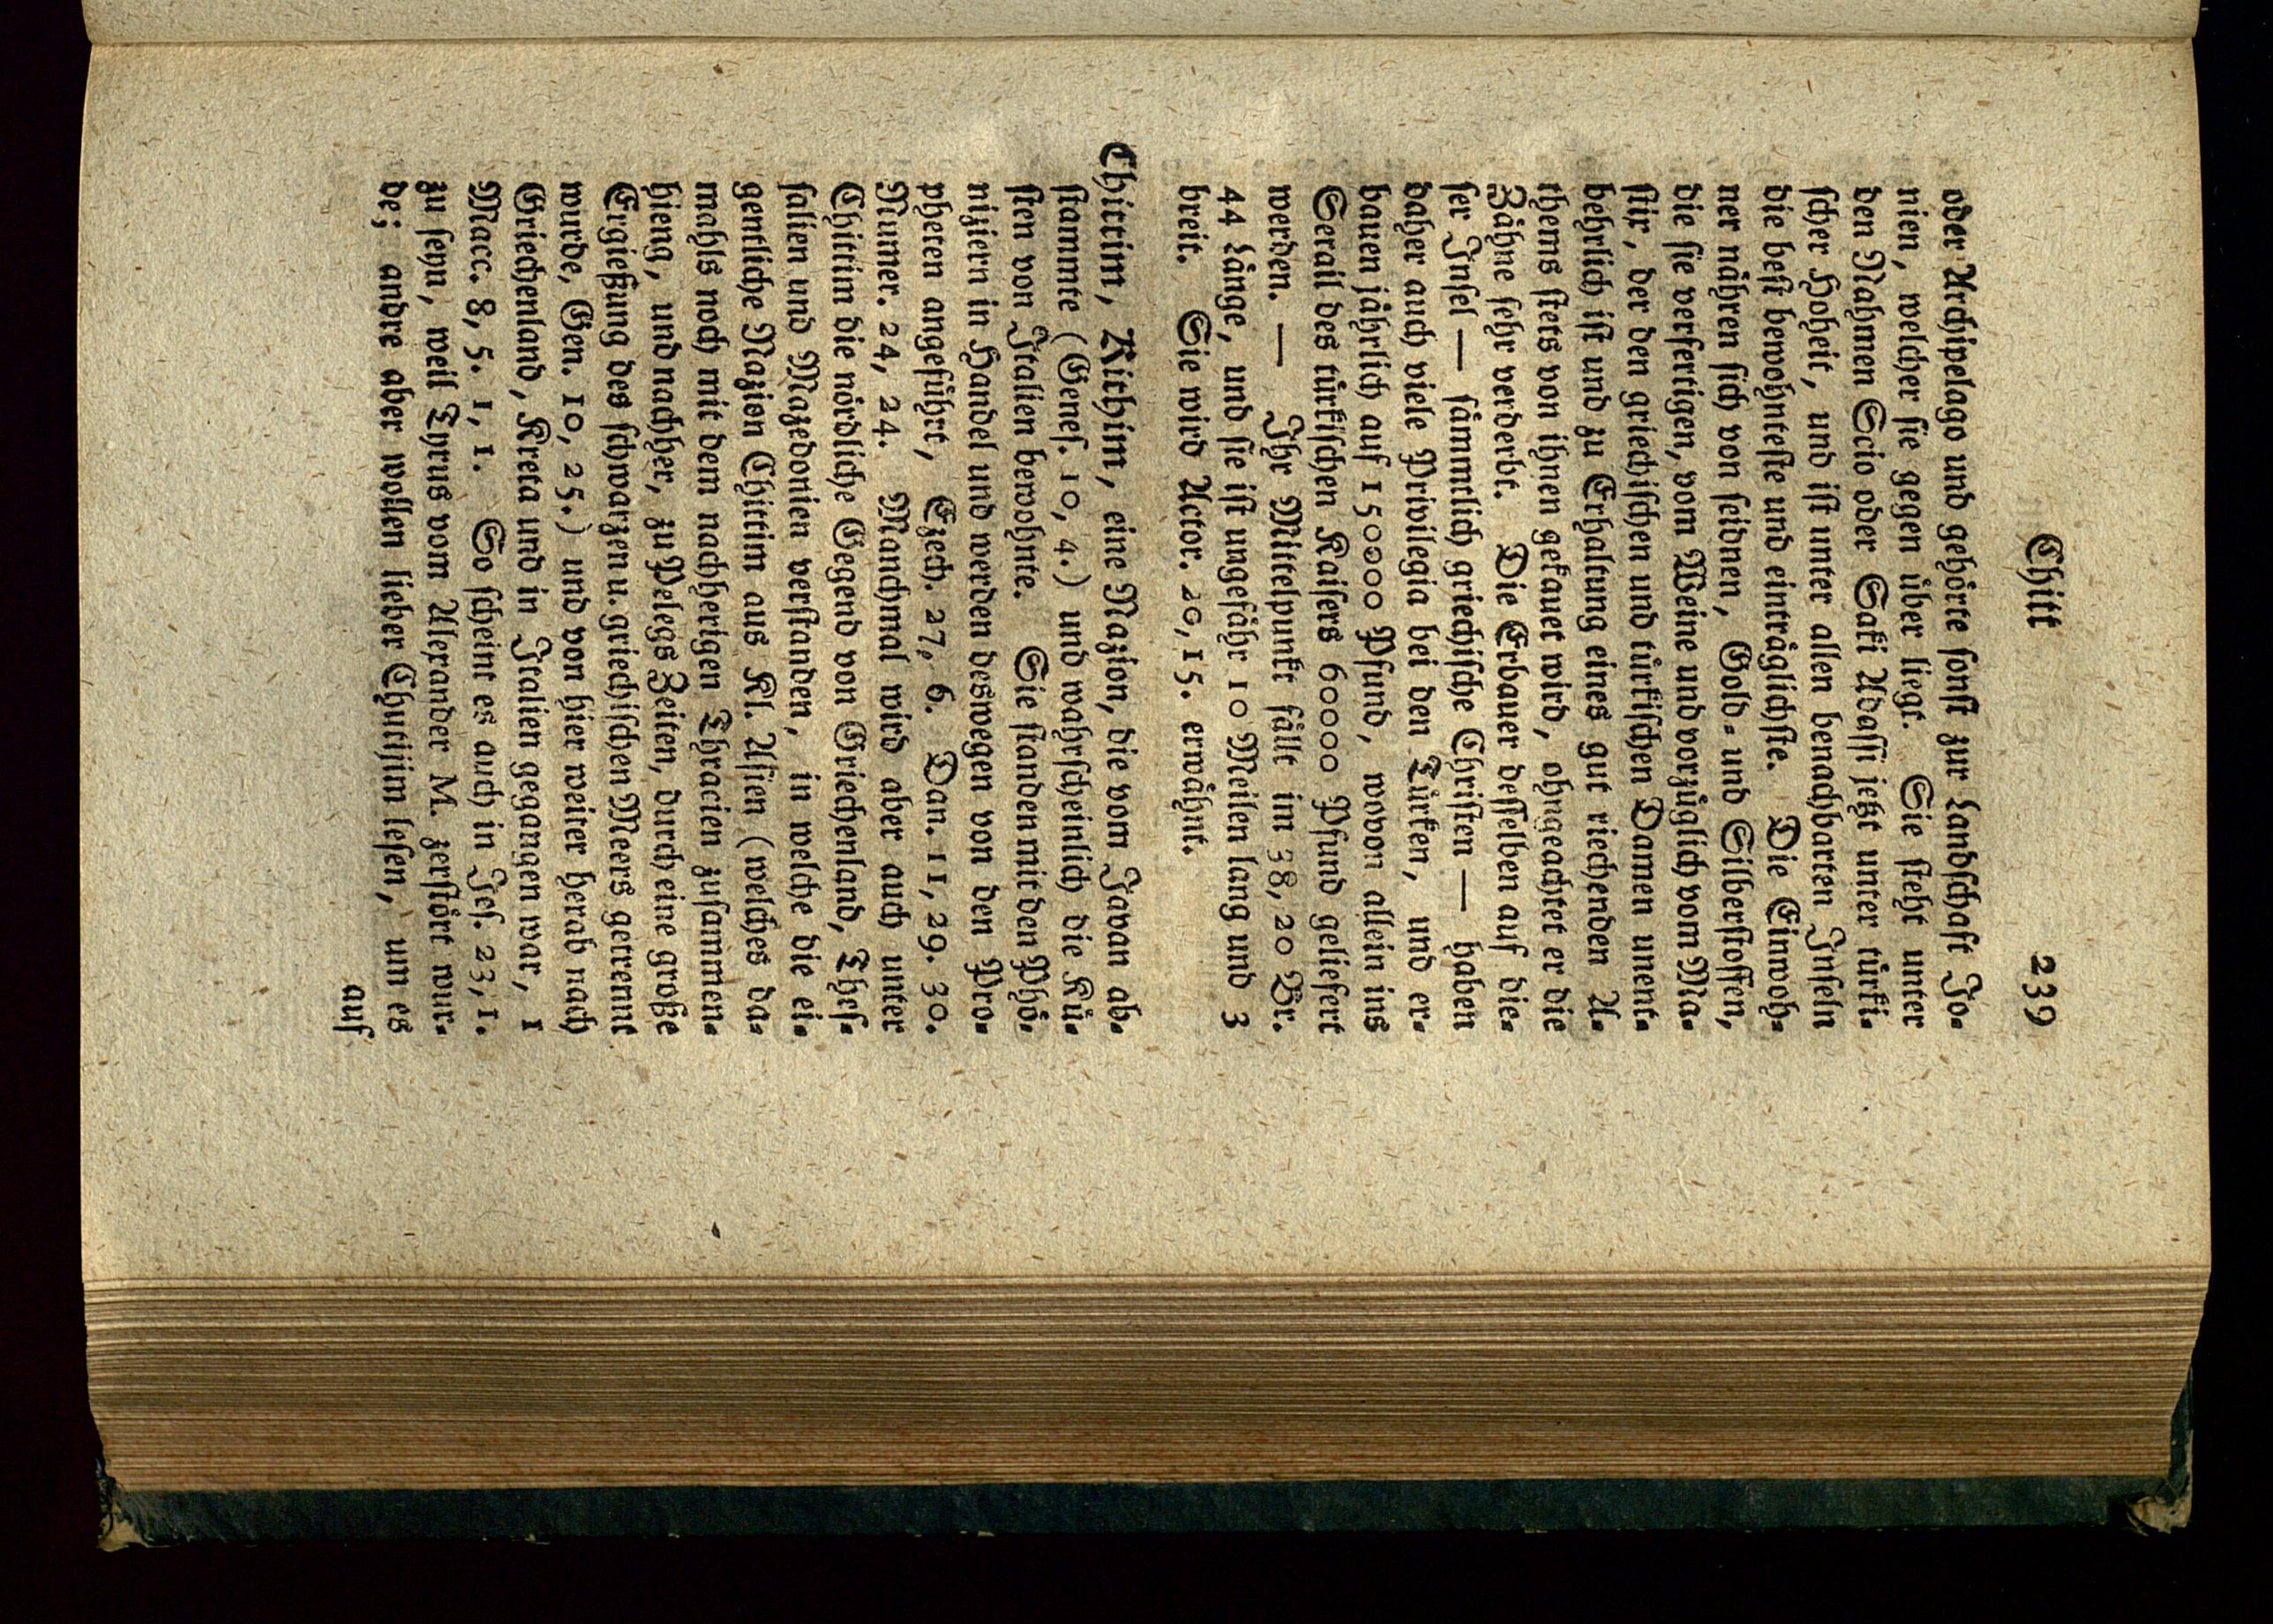 Chitt 239
oder Archipelago und gehörte ſonſt zur Landſchaft Jo-
nien, welcher ſie gegen über liegt. Sie ſteht unter
den Nahmen Scio oder Saki Adaſſi jetzt unter türki-
ſcher Hoheit, und iſt unter allen benachbarten Inſeln
die beſt bewohnteſte und einträglichſte. Die Einwoh-
ner nähren ſich von ſeidnen, Gold- und Silberſtoffen,
die ſie verfertigen, vom Weine und vorzüglich vom Ma-
ſtix, der den griechiſchen und türkiſchen Damen unent-
behrlich iſt und zu Erhaltung eines gut riechenden A-
thems ſtets von ihnen gekauet wird, ohngeachtet er die
Zähne ſehr verderbt. Die Erbauer deſſelben auf die-
ſer Inſel — ſämmtlich griechiſche Chriſten — haben
daher auch viele Privilegia bei den Türken, und er-
bauen jährlich auf 150000 Pfund, wovon allein ins
Serail des türkiſchen Kaiſers 60000 Pfund geliefert
werden. — Ihr Mittelpunkt fällt im 38, 20 Br.
44 Länge, und ſie iſt ungefähr 10 Meilen lang und 3
breit. Sie wird Actor. 20, 15. erwähnt.
Chittim, Kithim, eine Nazion, die vom Javan ab-
ſtammte (Geneſ. 10, 4.) und wahrſcheinlich die Kü-
ſten von Italien bewohnte. Sie ſtanden mit den Phö-
niziern in Handel und werden deswegen von den Pro-
pheten angeführt, Ezech. 27, 6. Dan. 11, 29. 30.
Numer. 24, 24. Manchmal wird aber auch unter
Chittim die nördliche Gegend von Griechenland, Theſ-
ſalien und Mazedonien verſtanden, in welche die ei-
gentliche Nazion Chittim aus Kl. Aſien (welches da-
mahls noch mit dem nachherigen Thracien zuſammen-
hieng, und nachher, zu Pelegs Zeiten, durch eine große
Ergießung des ſchwarzen u. griechiſchen Meers getrennt
wurde, Gen. 10, 25.) und von hier weiter herab nach
Griechenland, Kreta und in Italien gegangen war, 1
Macc. 8, 5. 1, 1. So ſcheint es auch in Jeſ. 23, 1.
zu ſeyn, weil Tyrus vom Alexander M. zerſtört wur-
de; andre aber wollen lieber Chutijim leſen, um es
auf